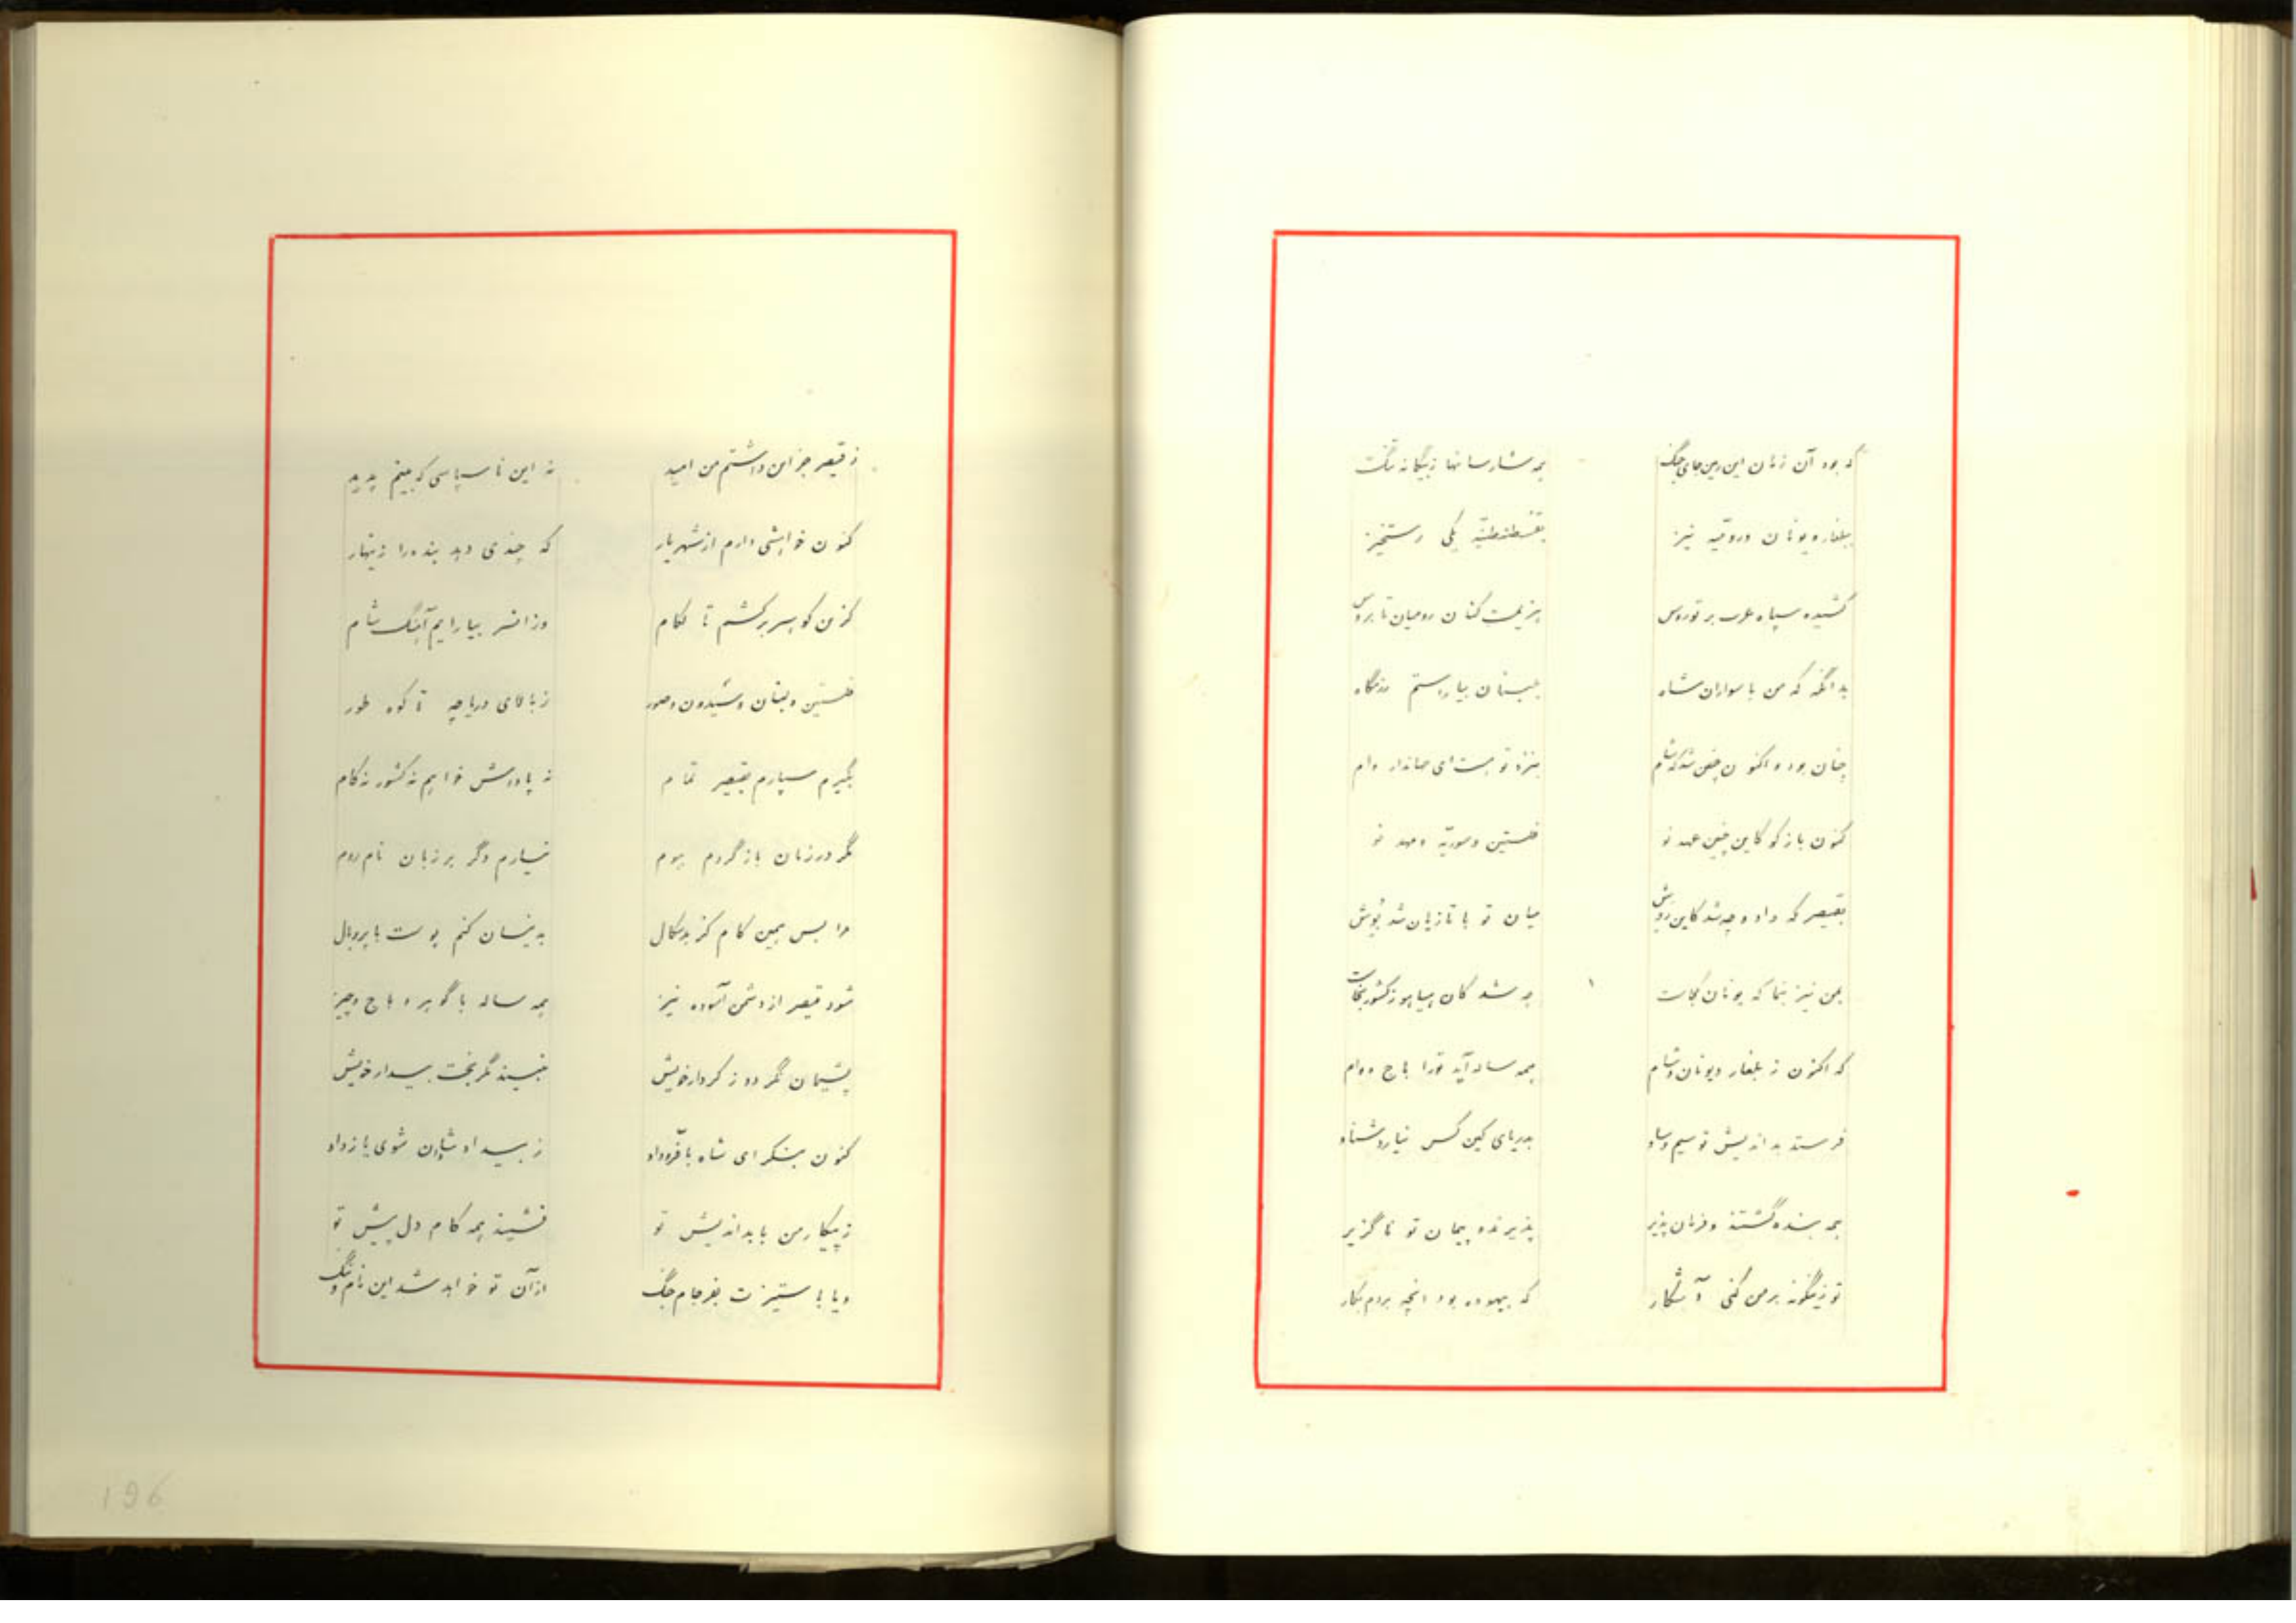 که بود آن زمان این زمین جای جنگ همه شارسانها ز بیگانه تنگ
ببلغار و یونان و رومیّه نیز بقسطنطنیّه یکی رستخیز
کشیده سپاه عرب بر توروس هزیمت کنان رومیان تا بروس
بدانگه که من با سواران شاه بلبنان بیاراستم رزمگاه
چنان بود و اکنون چنین شد که شام بنزد تو است ای جهاندار وام
کنون باز گو کاین چنین عهد نو فلسطین و سوریّه و مهد نو
بقیصر که داد و چه شد کاین روش میان تو با تازیان شد
بمن نیز بنما که یونان کجاست چه شد کان سپاه بزرگ
که اکنون ز بلغار و یونان و شام همه ساله آید تو را باج و وام
فرستد بداندیش تو سیم و ساو بدریای کین کس نیارد شناو
همه بنده گشتند و فرمان پذیر پذیرنده پیمان تو ناگزیر
تو زینگونه بر من کنی آشکار که بیهوده بود آنچه بردم بکار
ز قیصر جز این داشتم من امید نه این ناسپاسی که بینم پدید
کنون خواهشی دارم از شهریار که چندی دهد بنده را زینهار
کزین کوه سر برکشم تا لکام وز ایدر بیارایم آهنگ شام
فلسطین و لبنان و شیدون و صور ز بالای دریاچه تا کوه طور
بگیرم سپارم بقیصر تمام نه پاداش خواهم نه کشور نه کام
مگر در زمان بازگردم ببوم نیارم دگر بر زبان نام روم
مرا بس همین کام کز بدسگال بدینسان کنم پوست با پر و بال
شود قیصر از دشمن آسوده نیز همه ساله با گوهر و باج و چیز
پشیمان مگر دور ز کردار خویش ببیند مگر بخت بیدار خویش
کنون بنگر ای شاه با فرّ و داد ز بیداد شان شوی یا ز داد
ز پیکار من با بداندیش تو نشیند همه کام دل پیش تو
و یا با ستیزت بفرجام جنگ از آن تو خواهد شد این نام و ننگ
196